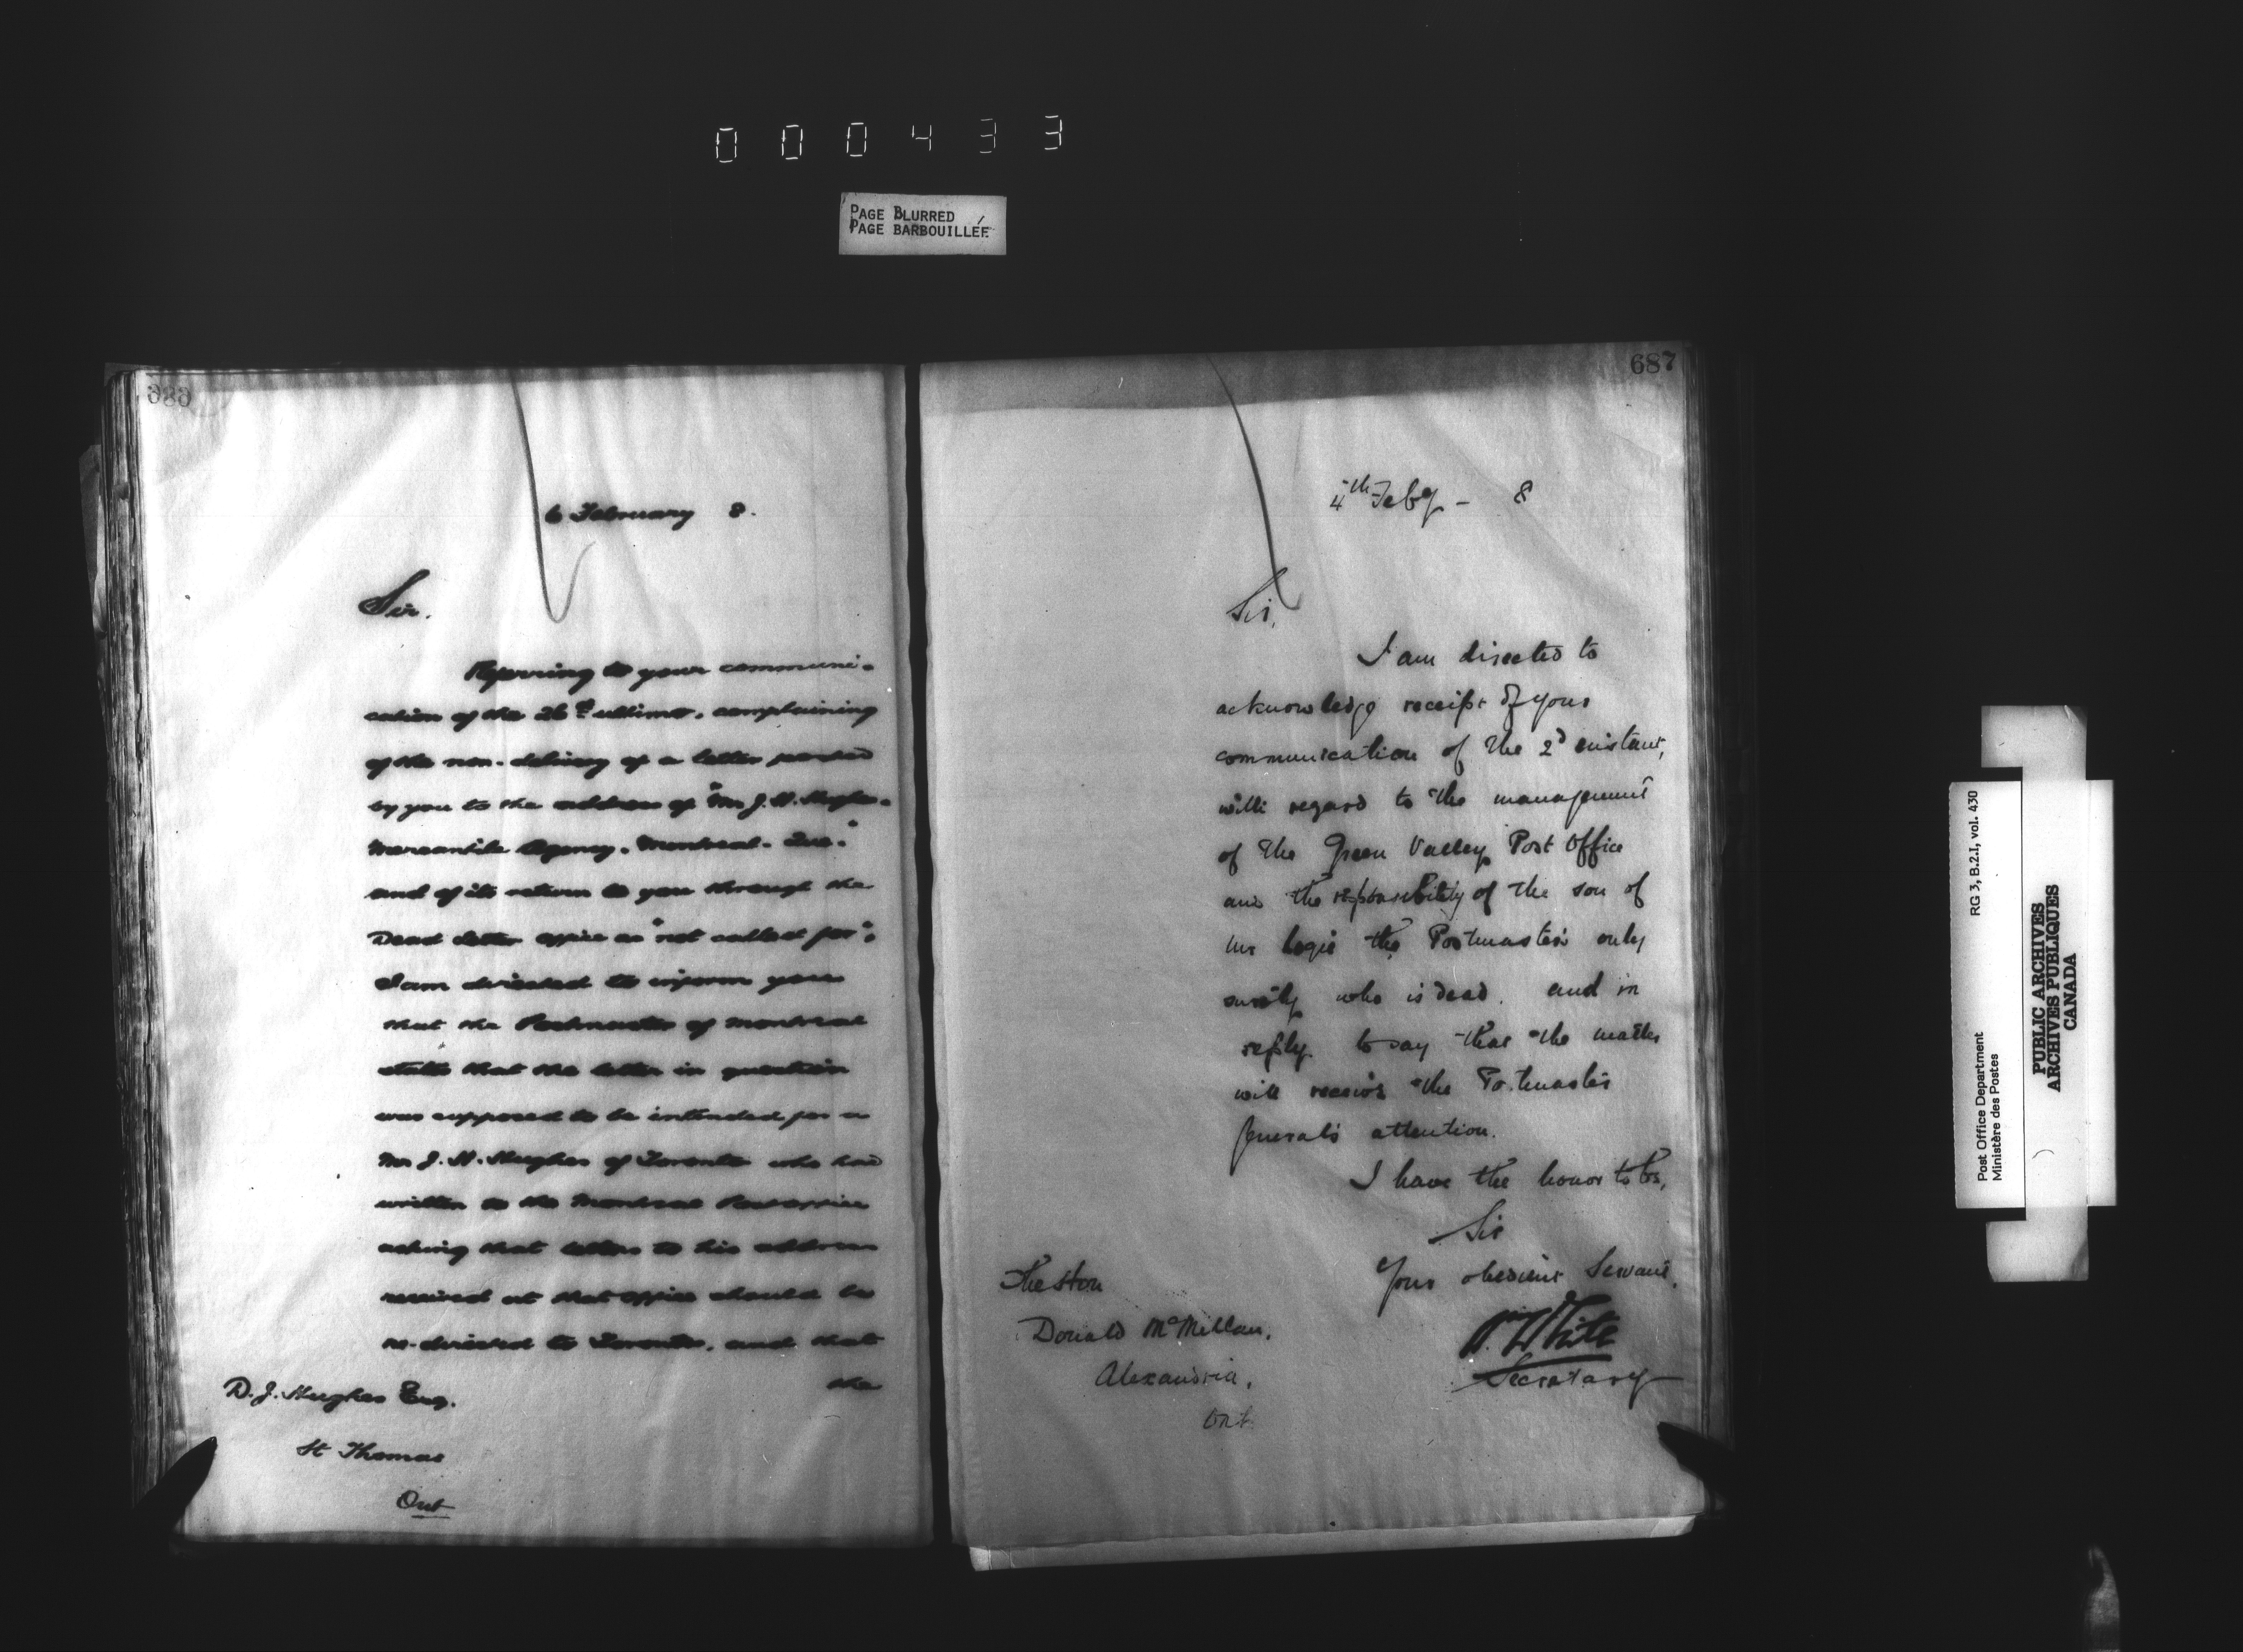 000433
PAGE BLURRED
PAGE BARBOUILLÉE
6 February 8.
Sir.
Referring to your communi-
cation of the 26th ultimo, complaining
of the non-delivery of a letter posted
by you to the address of "Mr J. H. Hughes.
Mercantile Agency. Montreal. Que."
and of its return to you through the
Dead Letter Office as "not called for",
I am directed to inform you
that the Postmaster of Montreal
states that the letter in question
was supposed to be intended for a
Mr J. H. Hughes of Toronto who had
written to the Montreal Post Office
asking that letters to his address
received at that office should be
re-directed to Toronto, and that
the
D. J. Hughes Esq.
St Thomas
Ont
687
4th Feby - 8
Sir,
I am directed to
acknowledge receipt of your
communication of the 2d instant,
with regard to the management
of the Green Valley Post Office
and the responsibility of the son of
the Postmaster's only
surety who is dead. and in
reply to say that the matter
will receive the Postmaster
General's attention.
I have the honor to be,
Sir
Your obedient Servant,
W. White
Secretary
The Hon
Donald McMillan,
Alexandria,
Ont
Post Office Department
Ministère des Postes
RG 3, B.2.I, vol. 430
PUBLIC ARCHIVES
ARCHIVES PUBLIQUES
CANADA